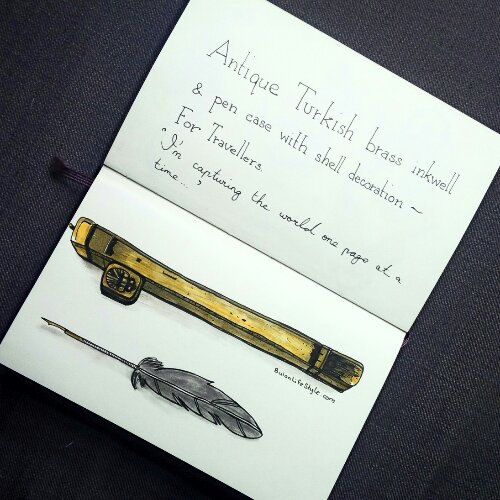 Antique Turkish brass inkwell
& pen case with shell decoration ~
For Travellers.
"I'm capturing the world one page at a
time... "
BuianLifeStyle.com